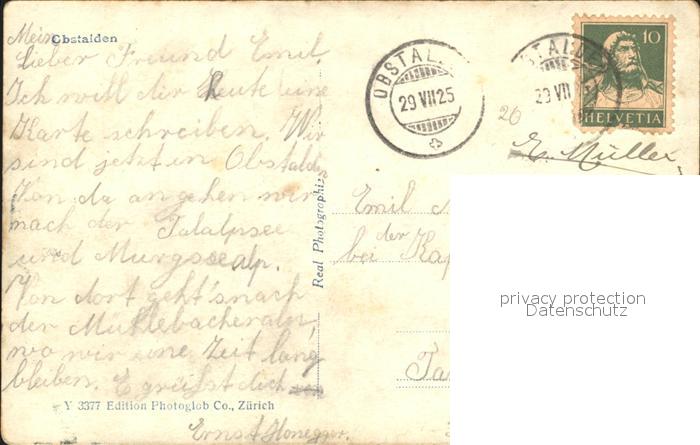 Obstalden
Mein
lieber Freund Emil.
Ich will dir Heute eine
Karte schreiben. Wir
sind jetzt in Obstalden
Von da an gehen wir
nach der Talalpsee
und Murgseealp.
Von dort geht's nach
der Mühlebacheralp,
wo wir eine Zeit lang
bleiben. Es grüsst dich
Ernst Honegger.
Y 3377 Edition Photoglob Co., Zürich
Real Photographie
OBSTALDEN
29 VII 25
OBSTALDEN
29 VII
10
HELVETIA
26
E. Müller
Emil M
bei der Kap
Ta
privacy protection
Datenschutz